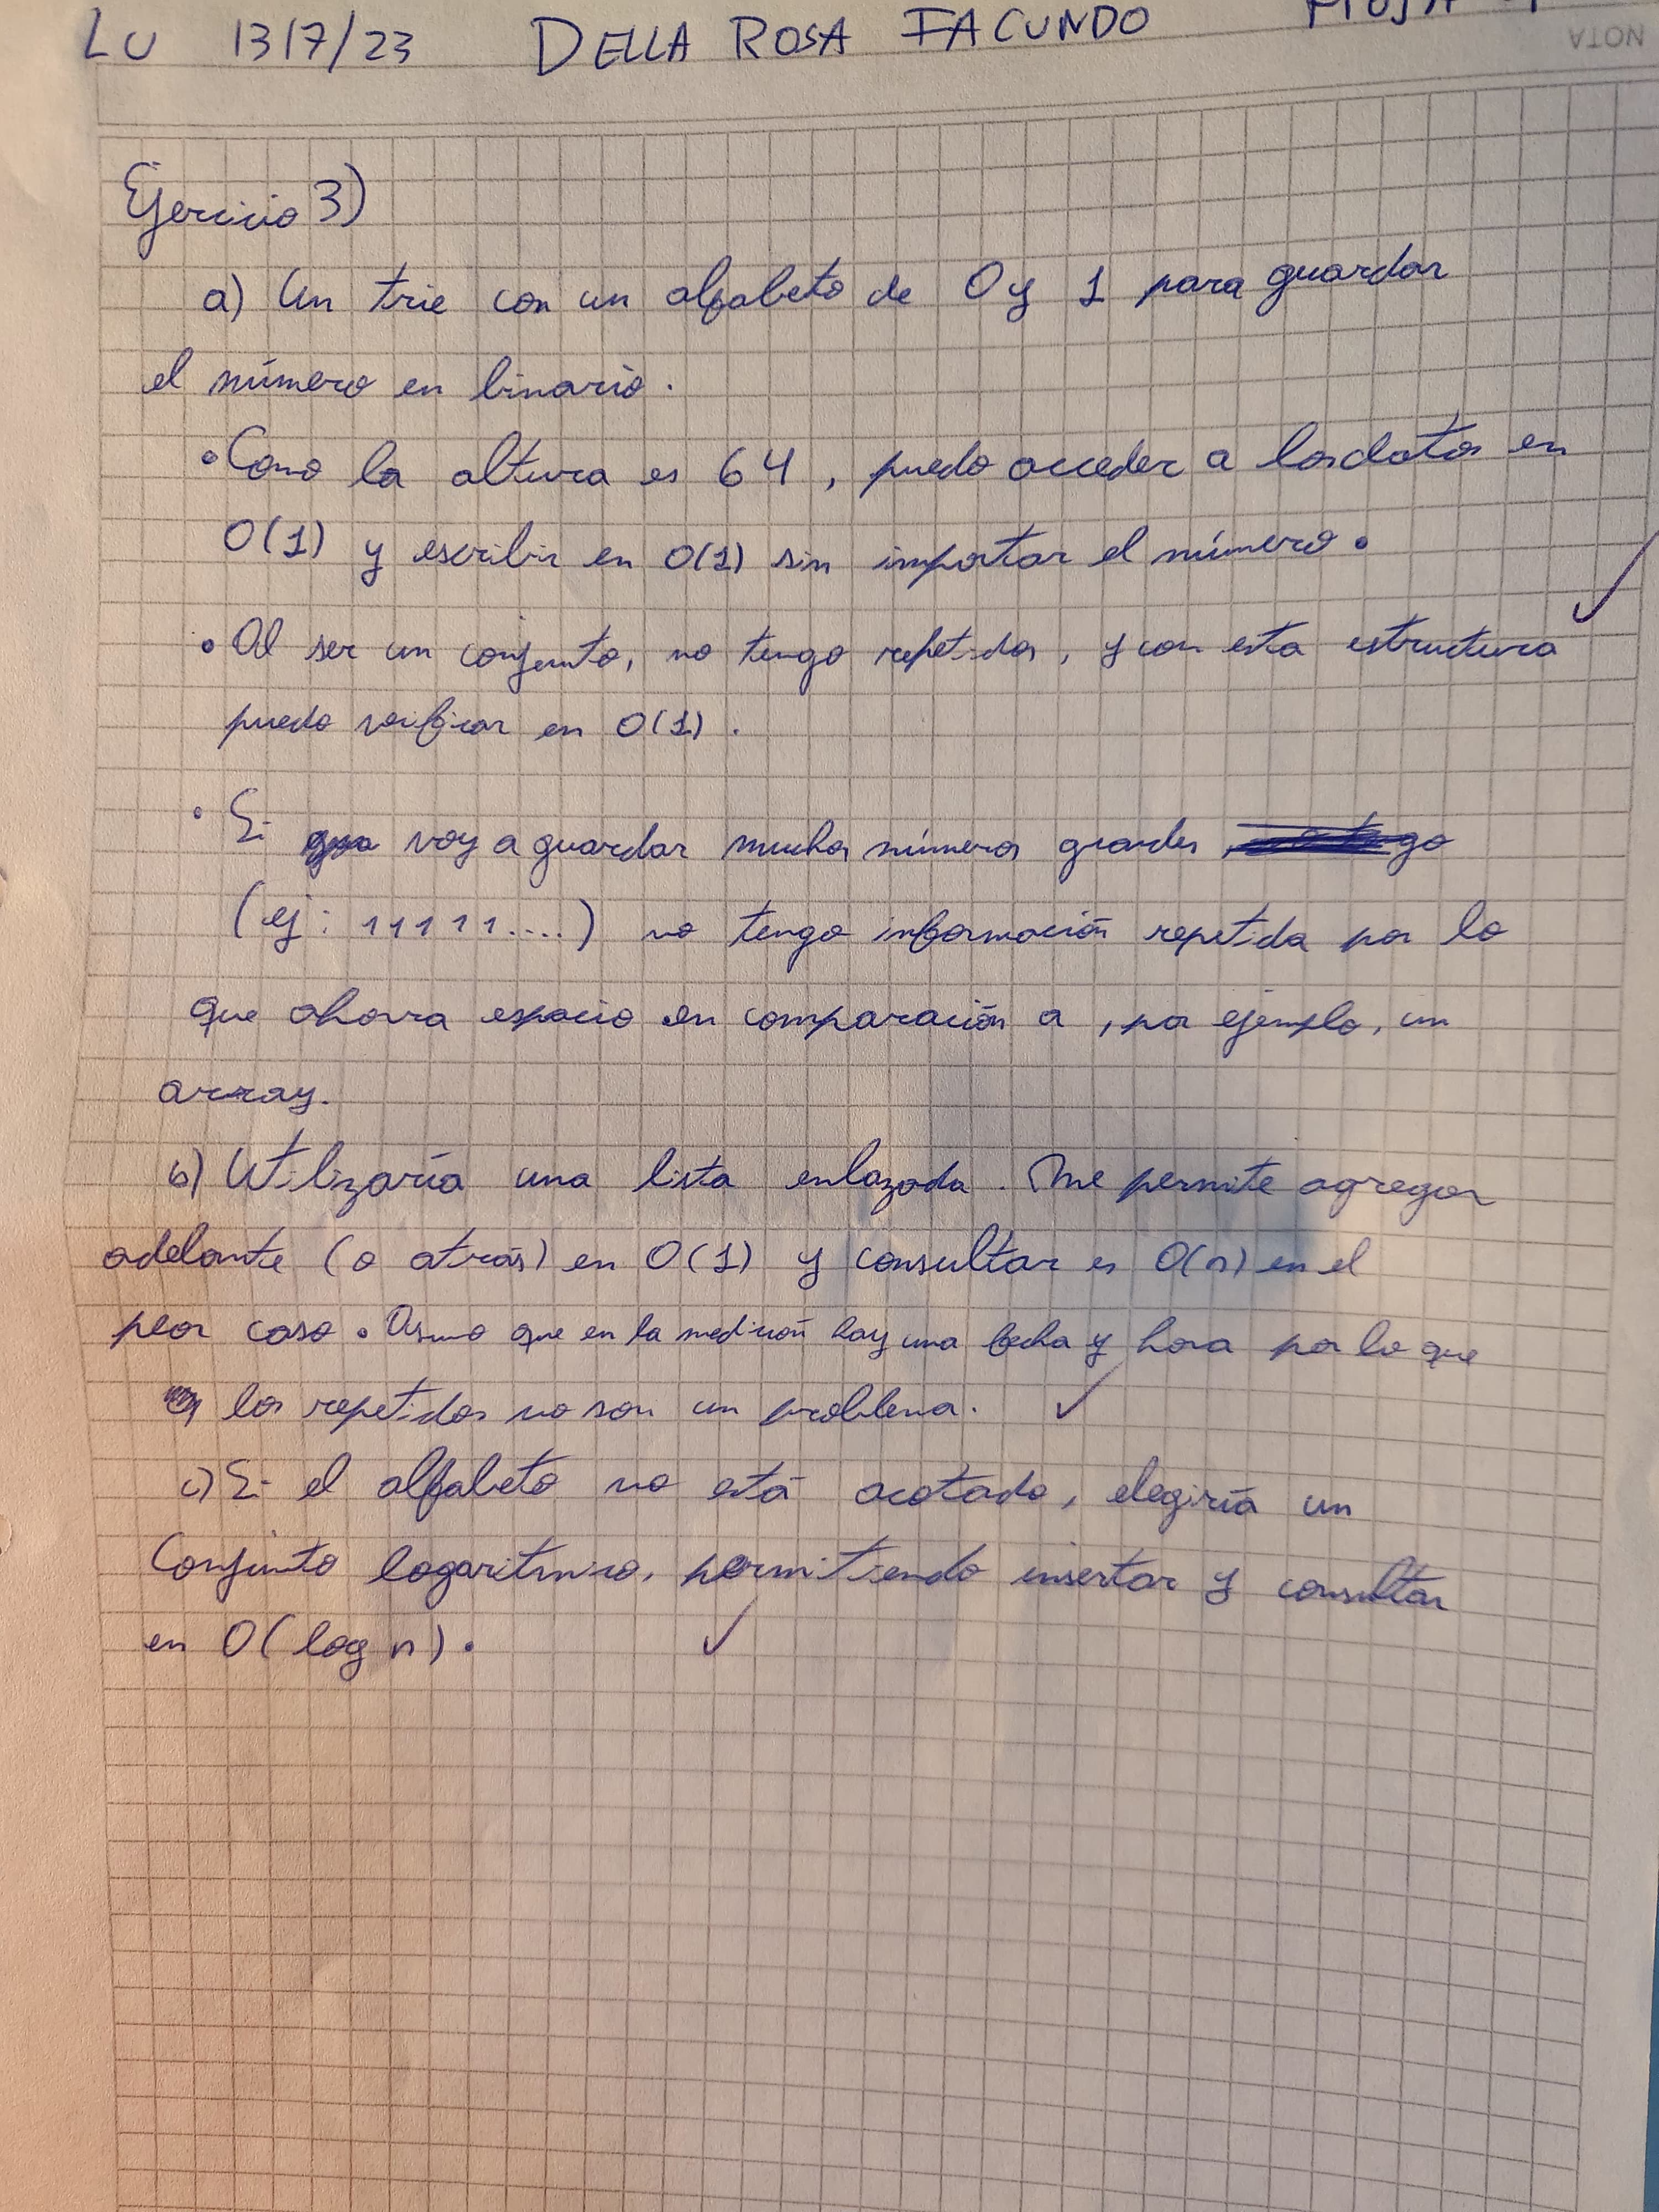 LU 1317/23 DELLA ROSA FACUNDO
NOTA
Ejercicio 3)
a) Un trie con un alfabeto de 0 y 1 para guardar
el número en binario.
• Como la altura es 64, puedo acceder a los datos en
O(1) y escribir en O(1) sin importar el número.
• Al ser un conjunto, no tengo repetidos, y con esta estructura
puedo verificar en O(1).
• Si voy a guardar muchos números grandes
(ej: 11111....) no tengo información repetida por lo
que ahorra espacio en comparación a, por ejemplo, un
array.
b) Utilizaría una lista enlazada. Me permite agregar
adelante (o atrás) en O(1) y consultar es O(n) en el
peor caso. Asumo que en la medición hay una fecha y hora por lo que
los repetidos no son un problema.
c) Si el alfabeto no está acotado, elegiría un
Conjunto logaritmico, permitiendo insertar y consultar
en O(log n).